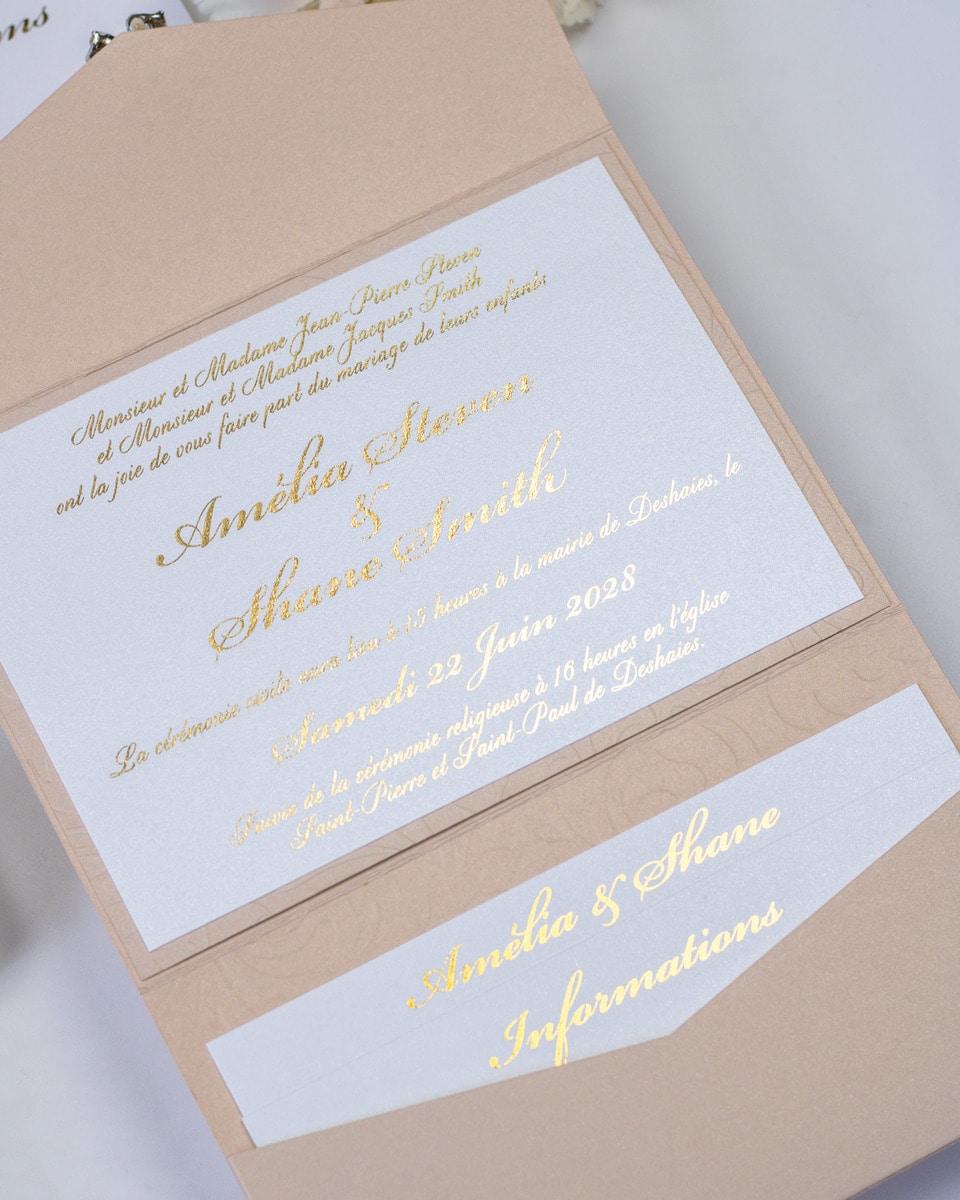 Monsieur et Madame Jean-Pierre Steven
et Monsieur et Madame Jacques Smith
ont la joie de vous faire part du mariage de leurs enfants
Amélia Steven
&
Shane Smith
La cérémonie civile aura lieu à 15 heures à la mairie de Deshaies, le
Samedi 22 Juin 2028
Suivie de la cérémonie religieuse à 16 heures en l'église
Saint-Pierre et Saint-Paul de Deshaies.
Amélia & Shane
Informations